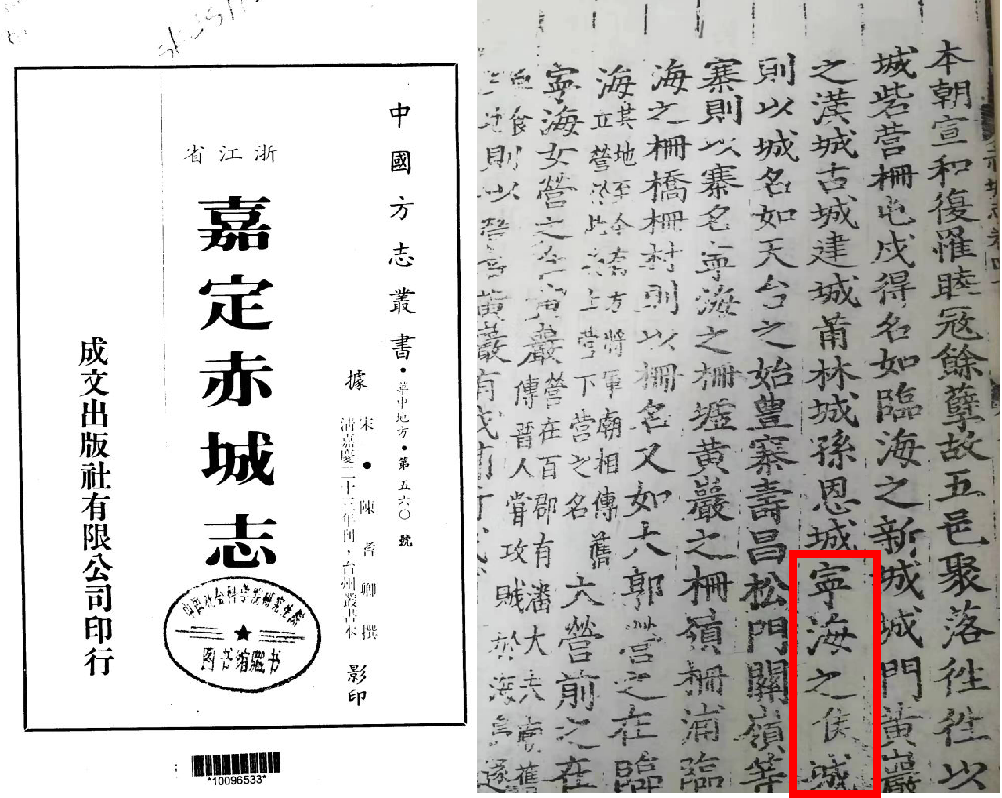 中國方志叢書·華中地方·第五六〇號
據
宋·陳耆卿撰
清嘉慶二十三年刊·台州叢書本
影印
浙江省
嘉定赤城志
成文出版社有限公司印行
图书馆藏书
*10096533*
本朝宣和復罹睦冦餘孽故五邑聚落徃徃以
城砦营柵屯戍得名如臨海之新城城門黃巖
之漢城古城建城莆林城孫恩城寧海之侯城
則以城名如天台之始豊寨壽昌松門關嶺等
寨則以寨名寧海之柵墟黃巖之柵嶺柵浦臨
海之柵橋柵村則以柵名又如大郭营之在臨
海其地至今有方將軍廟相傳舊
立營於此
上营下营之名
大營前之在
寧海女营之在黃巖营在百郡有潘大夫
傳晉人嘗攻賊於海島
則以营名黃巖有